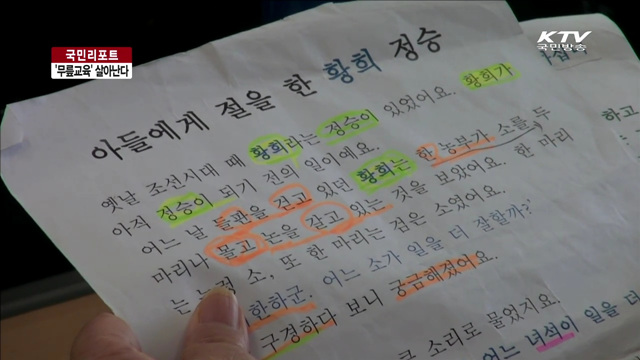 국민리포트
'무릎교육' 살아난다
KTV
국민방송
아들에게 절을 한 황희 정승
옛날 조선시대 때 황희라는 정승이 있었어요. 황희가
아직 정승이 되기 전의 일이에요.
어느 날 들판을 걷고 있던 황희는 한 농부가 소를 두
마리나 몰고 논을 갈고 있는 것을 보았어요. 한 마리
는 소, 또 한 마리는 검은 소였어요.
한하군. 어느 소가 일을 더 잘할까?'
구경하다 보니 궁금해졌어요.
소리로 물었지요.
녀석이 일을 더
하고